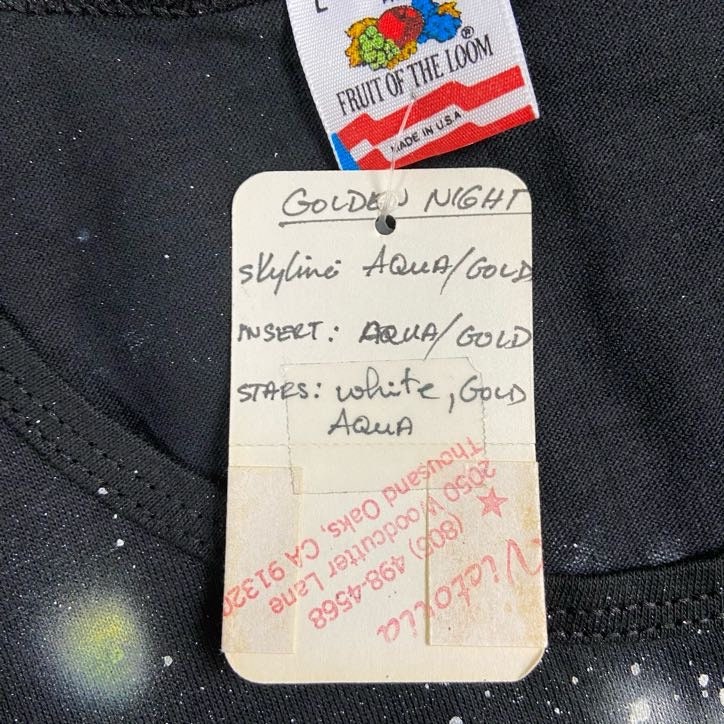 L
®
FRUIT OF THE LOOM
MADE IN U.S.A
GOLDEN NIGHT
Skyline AQUA/GOLD
INSERT: AQUA/GOLD
STARS: White, GOLD
AQUA
Victoria
(805) 498-4568
2050 Woodcutter Lane
Thousand Oaks, CA 91320